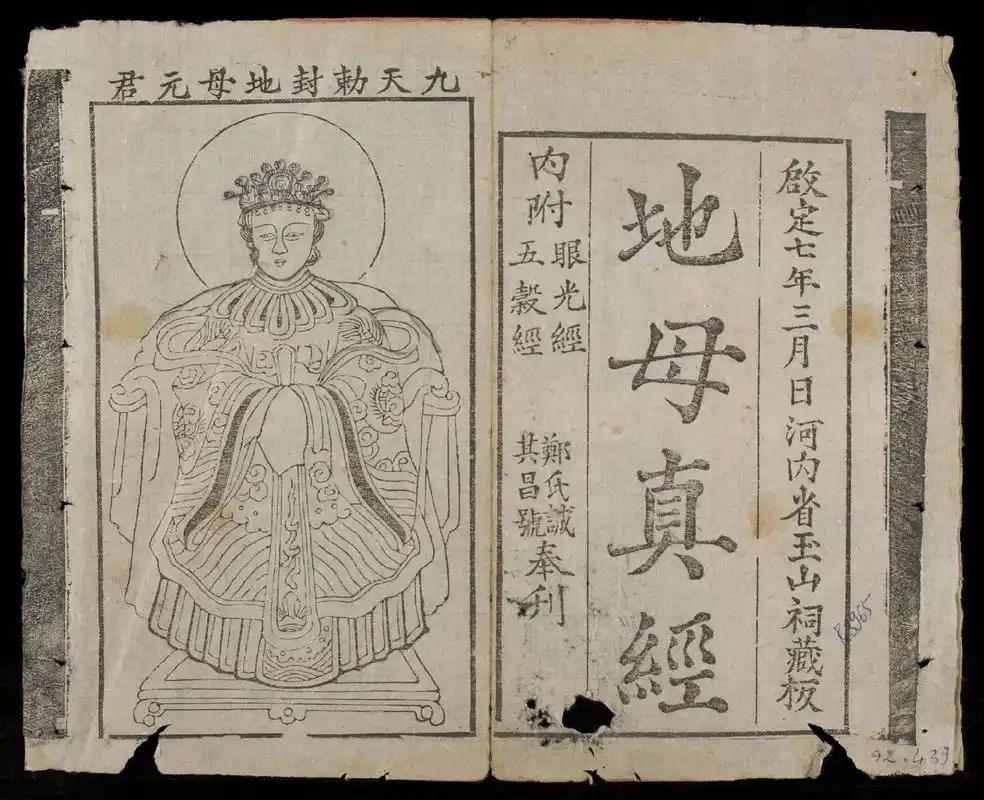 啟定七年三月日河内省玉山祠藏板
地母真經
内附
眼光經
五穀經
鄭氏誠
其昌號
奉刊
九天勅封地母元君
92.439